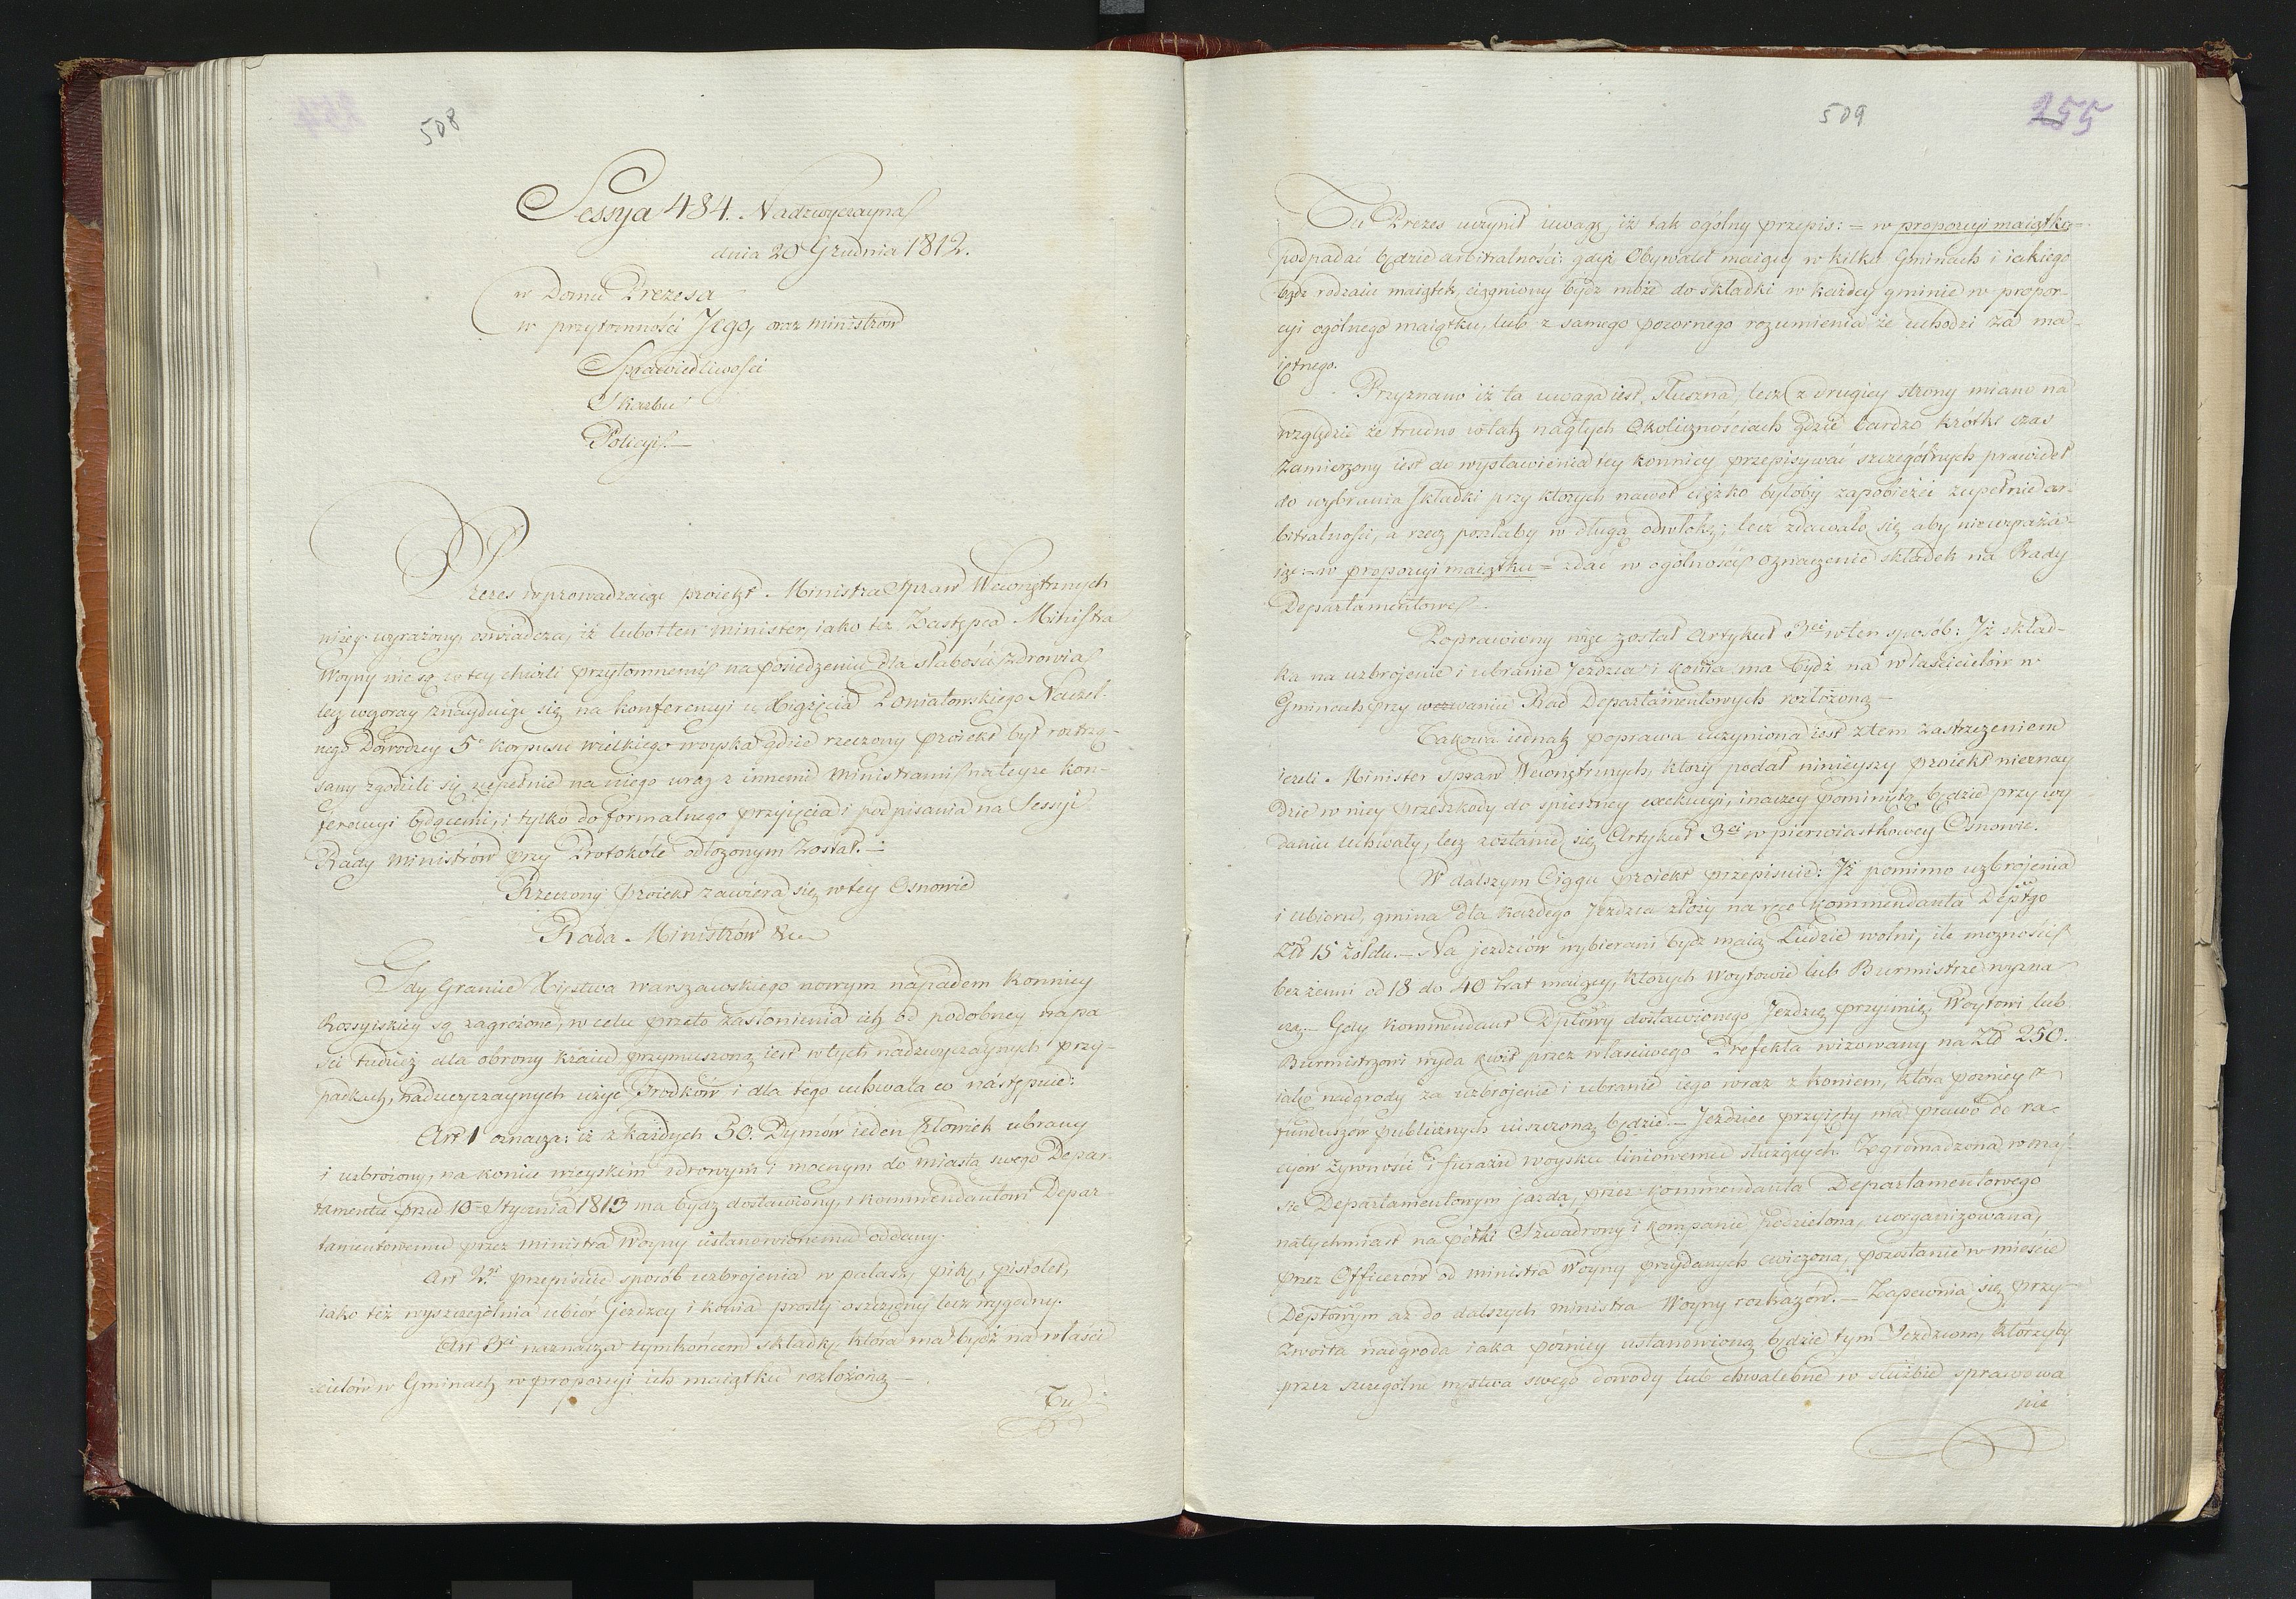 508
Sessya 484. Nadzwyczayna
dnia 20 Grudnia 1812.
w Domu Prezesa
w przytomności Jego, oraz ministrów
Sprawiedliwości
Skarbu
Policyi.—
Prezes wprowadzaiąc proiekt Ministra Spraw Wewnętrznych
niżey wyrażony, oświadcza, iż lubo ten minister, iako też Zastępca Ministra
Woyny nie są w tey chwili przytomnemi na posiedzeniu dla słabości zdrowia
lecz wczoray znayduiąc się na konferencyi u Xiążęcia Poniatowskiego Naczel-
nego Dowódzcy 5o korpusu wielkiego woyska gdzie rzeczony proiekt był roztrzą-
sany zgodzili się zupełnie na niego wraz z innemi ministrami na teyże kon-
ferencyi będącemi, i tylko do formalnego przyięcia i podpisania na Sessyi
Rady Ministrów przy Protokóle odłożonym został.—
Rzeczony proiekt zawiera się w tey Osnowie
Rada Ministrów &c
Gdy Granice Xięstwa Warszawskiego nowym napadem Konnicy
Rossyiskiey są zagrożone, w celu przeto zasłonienia ich od podobney napa
ści tudzież dla obrony kraiu przymuszoną iest w tych nadzwyczaynych przy-
padkach, nadzwyczaynych użyć Srodków i dla tego uchwala co następuie:
Art 1 oznacza: iż z każdych 50. Dymów ieden Człowiek ubrany
i uzbroiony, na koniu wieyskim zdrowym i mocnym do miasta swego Depar-
tamentu przed 10 Stycznia 1813 ma bydz dostawiony, i kommendantowi Depar-
tamentowemu przez ministra Woyny ustanowionemu oddany.
Art 2gi przepisuie sposób uzbrojenia w pałasz, pikę, pistolet,
iako też wyszczególnia ubiór jezdzcy i konia prosty oszczędny lecz wygodny.
Art 3ci naznacza tymkońcem składkę, która ma bydź na właści
cielów w Gminach w proporcyi ich maiątku rozłożoną —
Tu
509
255
Tu Prezes uczynił uwagę, iż tak ogólny przepis: = w proporcyi maiątku =
podpadać będzie arbitralności: gdyż Obywatel maiący w kilku Gminach i iakiego
bądz rodzaiu maiątek, ciągniony bydz może do składki w każdey gminie w propor-
cyi ogólnego maiątku, lub z samego pozornego rozumienia że uchodzi za ma-
iętnego.
Przyznano iż ta uwaga iest słuszna, lecz z drugiey strony miano na
względzie że trudno w tak nagłych Okolicznościach gdzie bardzo krótki czas
zamierzony iest do wystawienia tey konnicy przepisywać szczególnych prawideł
do wybrania składki przy ktorych nawet ciężko byłoby zapobieżeć zupełnie ar-
bitralności, a rzecz poszłaby w długą odwłokę; lecz zdawało się aby niewyraża-
iąc: = w proporcyi maiątku = zdać w ogólności oznaczenie składek na Rady
Departamentowe.
Poprawiony więc został Artykuł 3ci w ten sposób: Iż skład-
ka na uzbrojenie i ubranie Jezdzca i konia ma bydź na właścicielów w
Gminach przy wezwaniu Rad Departamentowych rozłożoną —
Takowa iednak poprawa uczyniona iest z tem zastrzeżeniem
ieżeli Minister Spraw Wewnętrznych, ktory podał ninieyszy proiekt nieznay
dzie w niey przeszkody do spieszney exekucyi, inaczey pominiętą będzie przy wy
daniu uchwały, lecz zostanie się Artykuł 3ci w pierwiastkowey Osnowie.
W dalszym Ciągu proiekt przepisuie: Iż pomimo uzbrojenia
i ubioru, gmina dla każdego Jezdzca złoży na ręce kommendanta Deptgo
Złp 15 żołdu.— Na jezdzców wybierani bydz maią Ludzie wolni, ile możności
bezżenni od 18 do 40 Lat maiący, których Woytowie lub Burmistrze wyzna
czą.— Gdy Kommendant Dptowy dostawionego Jezdzcę przyimie, Woytowi lub
Burmistrzowi wyda kwit przez właściwego Prefekta wizowany na Złp 250.
iako nadgrody za uzbrojenie i ubranie iego wraz z koniem, która pozniey z
funduszów publicznych uiszczoną będzie.— Jezdziec przyięty ma prawo do ra-
cyów żywności i furażu woysku liniowemu służących. Zgromadzona w mie-
ście Departamentowym jazda, przez kommendanta Departamentowego
natychmiast na półki Szwadrony i kompanie podzielona, uorganizowana,
przez Officerów od ministra Woyny przydanych cwiczona, pozostanie w mieście
Deptowym aż do dalszych ministra Woyny rozkazów.— Zapewnia się przy-
zwoita nadgroda iaka pózniey ustanowioną będzie tym Jezdzcom, którzyby
przez szczególne męstwa swego dowody lub chwalebne w służbie sprawowa
nie